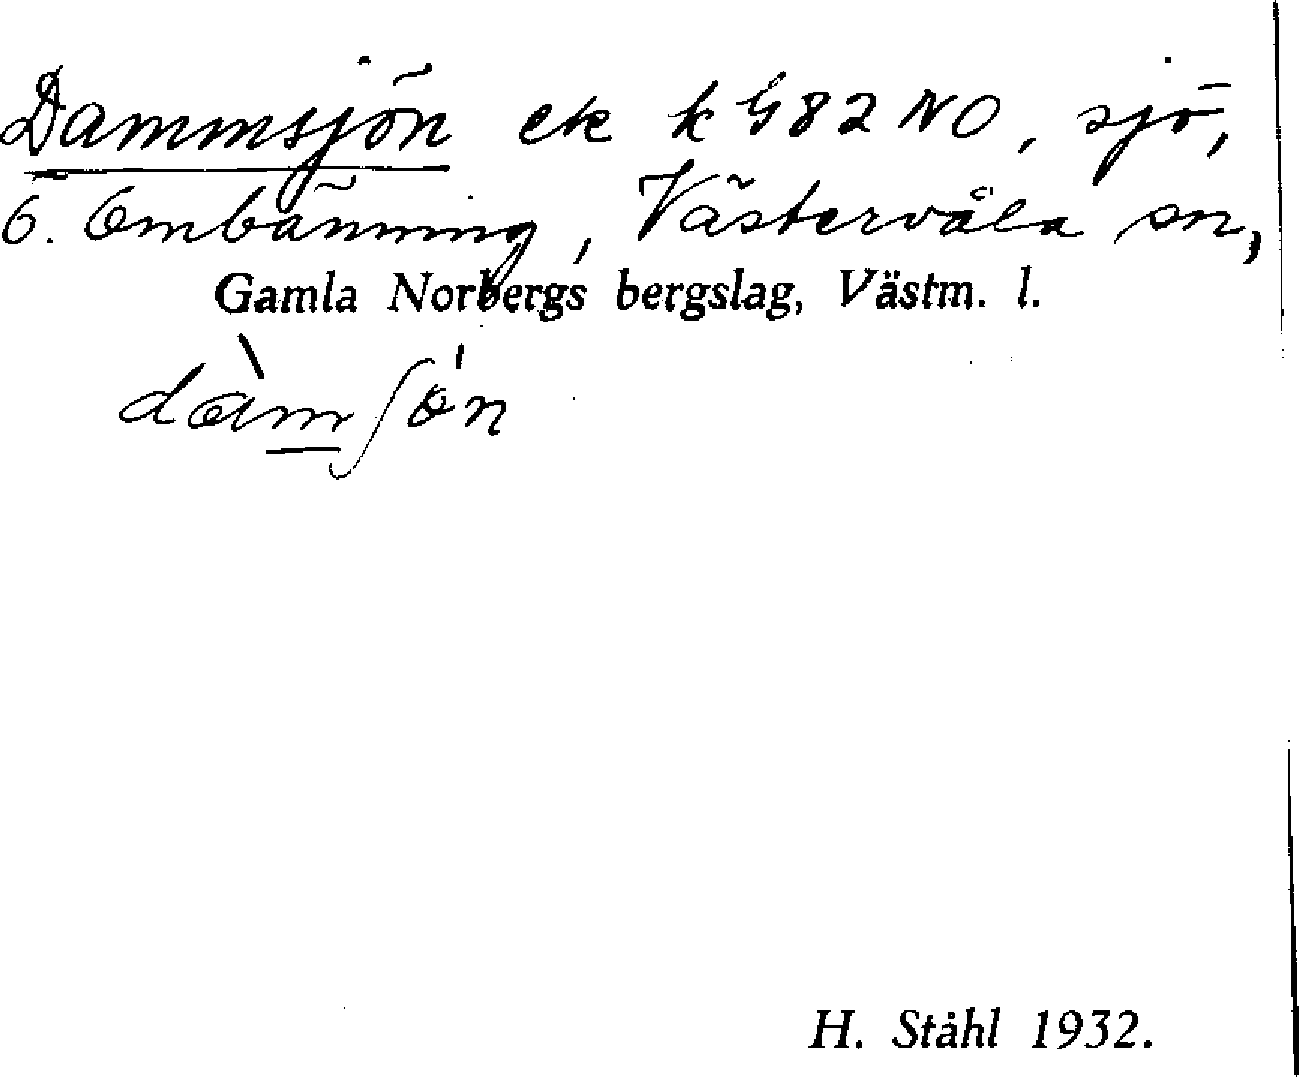 Dammsjön ek k G82 NO, sjö,
6. Ombänning, Västervåla sn,
Gamla Norbergs bergslag, Västm. l.
dàmʃö́n
H. Ståhl 1932.